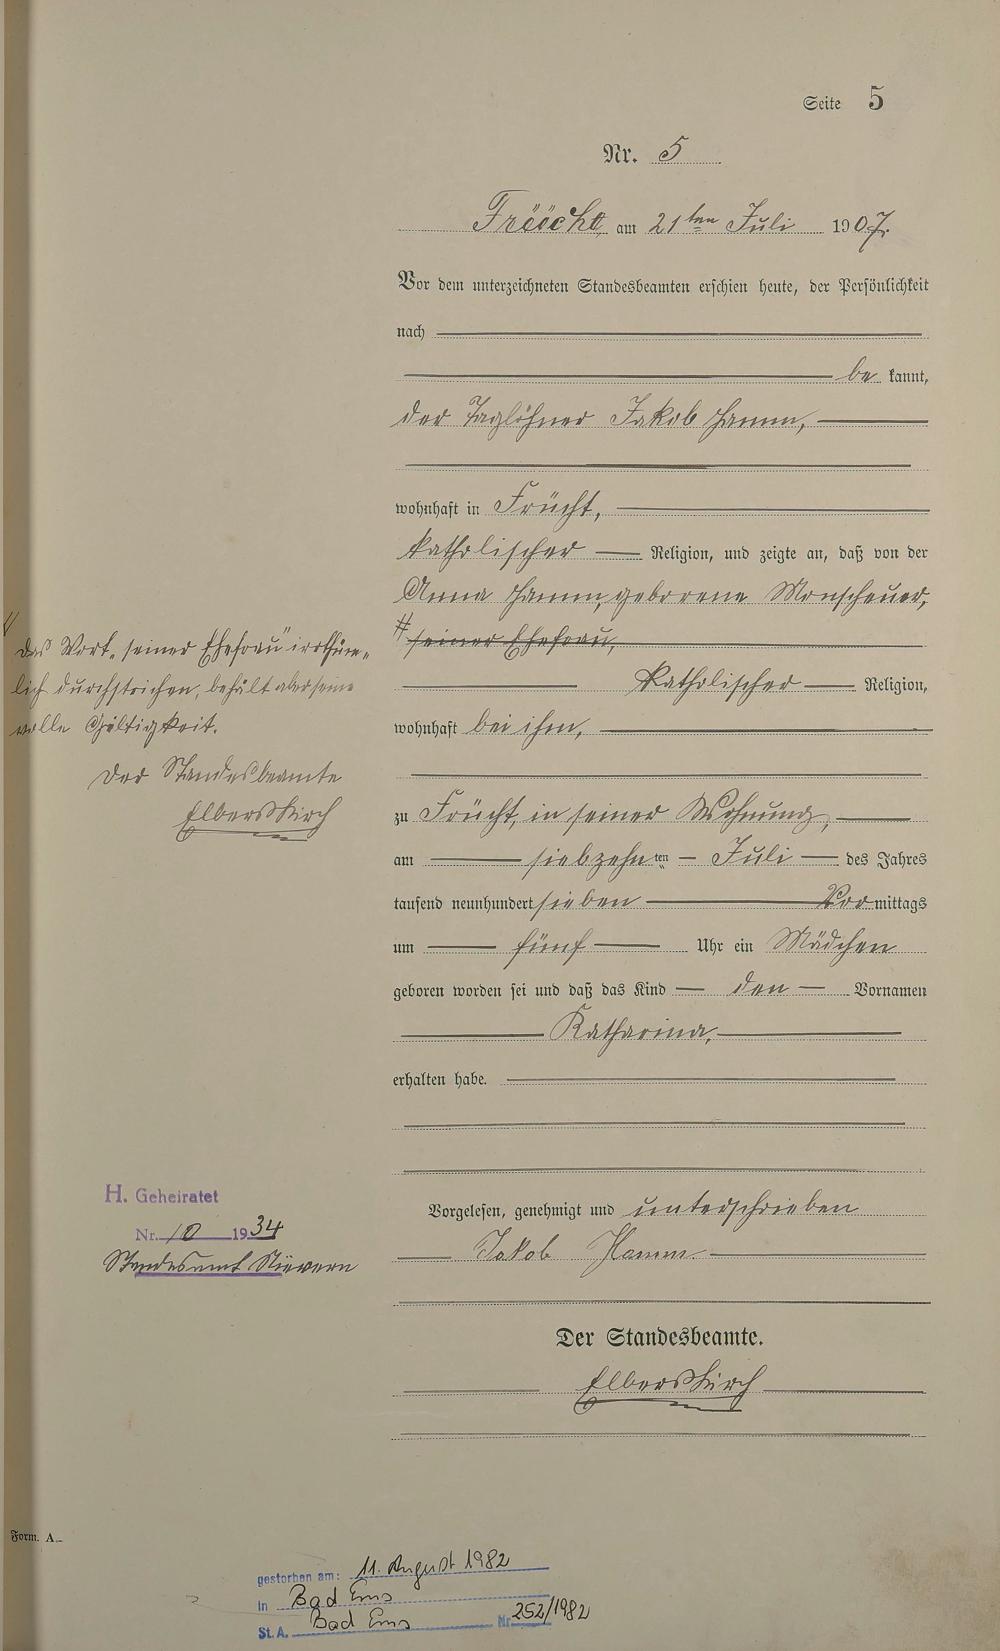 Seite 5
Nr. 5
Früücht, am 21ten Juli 1907.
Vor dem unterzeichneten Standesbeamten erschien heute, der Persönlichkeit
nach
be kannt,
der Taglöhner Jakob Hamm,
wohnhaft in Frücht,
katholischer Religion, und zeigte an, daß von der
Anna Hamm, geborene Monscheuer,
# seiner Ehefrau,
katholischer Religion,
wohnhaft bei ihm,
zu Frücht, in seiner Wohnung,
am siebzehnten Juli des Jahres
tausend neunhundert sieben Vor mittags
um fünf Uhr ein Mädchen
geboren worden sei und daß das Kind den Vornamen
Katharina,
erhalten habe.
Vorgelesen, genehmigt und unterschrieben
Jakob Hamm
Der Standesbeamte.
Elberskirch
# Das Wort „seiner Ehefrau" irrthüm-
lich durchstrichen, behält aber seine
volle Gültigkeit.
Der Standesbeamte
Elberskirch
H. Geheiratet
Nr. 10 1934
Standesamt Nievern
Form. A.
gestorben am: 11. August 1982
in Bad Ems
St.A. Bad Ems Nr. 252/1982